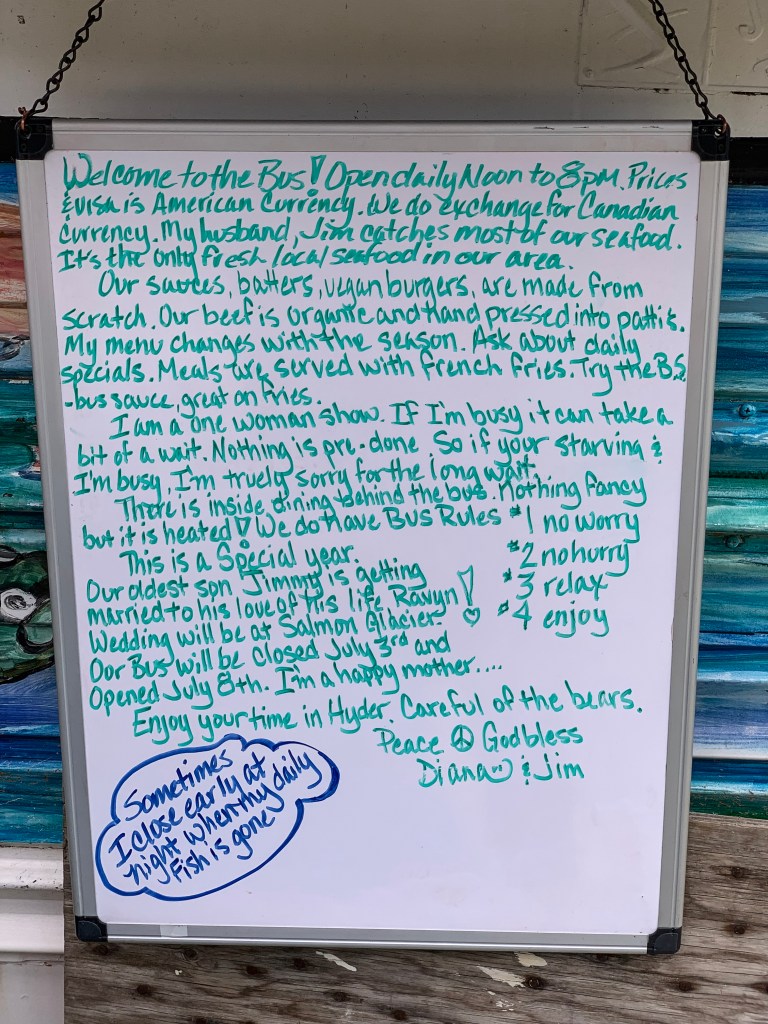 Welcome to the Bus! Open daily Noon to 8pm. Prices
& visa is American Currency. We do exchange for Canadian
Currency. My husband, Jim catches most of our seafood.
It's the only fresh local seafood in our area.
Our sauces, batters, vegan burgers, are made from
scratch. Our beef is organic and hand pressed into pattis.
My menu changes with the season. Ask about daily
specials. Meals are served with french fries. Try the B.S.
-bus sauce, great on fries.
I am a one woman show. If I'm busy it can take a
bit of a wait. Nothing is pre-done So if your starving &
I'm busy, I'm truely sorry for the long wait.
There is inside dining behind the bus. Nothing fancy
but it is heated! We do Have BUS RULES #1 no worry
#2 no hurry
#3 relax
#4 enjoy
This is a Special year.
Our oldest son, Jimmy is getting
married to his love of his life, Ravyn!
Wedding will be at Salmon Glacier.
Oor Bus will be closed July 3rd and
Opened July 8th. I'm a happy mother....
Enjoy your time in Hyder. Careful of the bears.
Peace ☮ Godbless
Diana & Jim
Sometimes
I close early at
night when my daily
Fish is gone